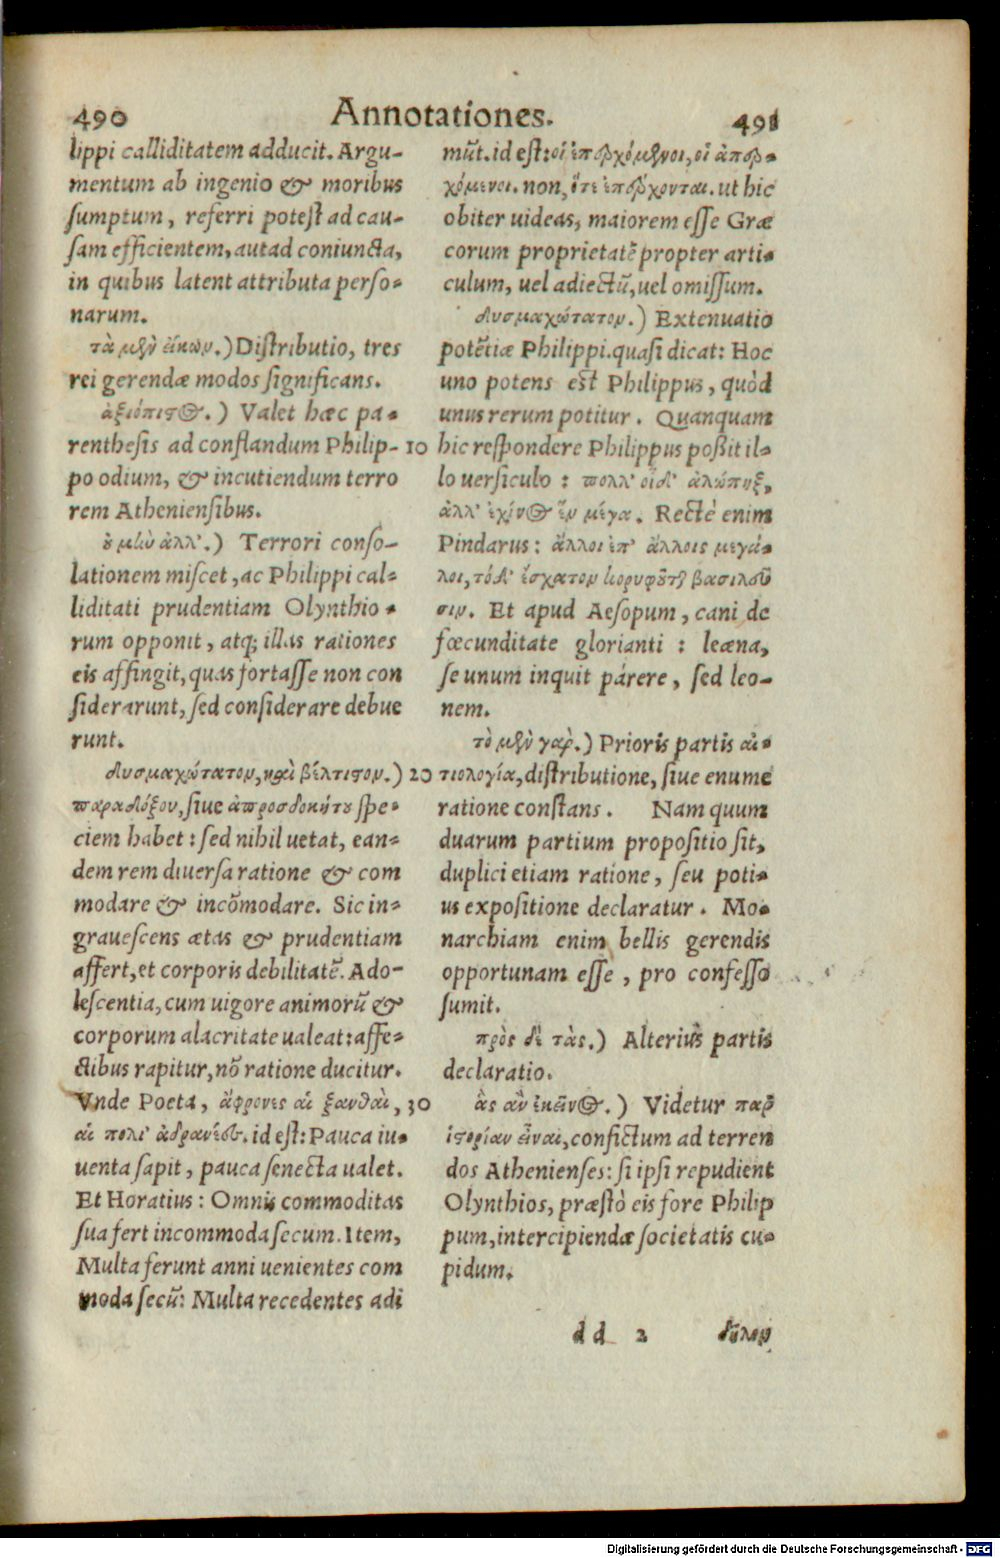 490 Annotationes. 491
lippi calliditatem adducit. Argu-
mentum ab ingenio & moribus
sumptum, referri potest ad cau-
sam efficientem, aut ad coniuncta,
in quibus latent attributa perso-
narum.
τὰ μὲν ἑκὼν.) Distributio, tres
rei gerendæ modos significans.
ἀξιόπιστος.) Valet hæc pa-
renthesis ad conflandum Philip-
po odium, & incutiendum terro
rem Atheniensibus.
οὐ μὴν ἀλλ’.) Terrori conso-
lationem miscet, ac Philippi cal-
liditati prudentiam Olynthio-
rum opponit, atq; illas rationes
eis affingit, quas fortasse non con
siderarunt, sed considerare debue
runt.
δυσμαχώτατον, καὶ βέλτιστον.)
παραδόξου, siue ἀπροσδοκήτου spe-
ciem habet: sed nihil uetat, ean-
dem rem diuersa ratione & com
modare & incōmodare. Sic in-
grauescens ætas & prudentiam
affert, et corporis debilitatē. Ado-
lescentia, cum uigore animorū &
corporum alacritate ualeat: affe-
ctibus rapitur, nō ratione ducitur.
Vnde Poeta, ἄφρονες αἱ ξανθαὶ,
αἱ πολι’ ἀδρανέες. id est: Pauca iu-
uenta sapit, pauca senecta ualet.
Et Horatius: Omnis commoditas
sua fert incommoda secum. Item,
Multa ferunt anni uenientes com
moda secū: Multa recedentes adi
10
20
30
mūt. id est: οἱ ἐπερχόμενοι, οἱ ἀπερ-
χόμενοι. non, ὅτε ἐπέρχονται. ut hic
obiter uideas, maiorem esse Græ
corum proprietatē propter arti-
culum, uel adiectū, uel omissum.
δυσμαχώτατον.) Extenuatio
potētiæ Philippi. quasi dicat: Hoc
uno potens est Philippus, quòd
unus rerum potitur. Quanquam
hic respondere Philippus poßit il-
lo uersiculo: πολλ’ οἶδ’ ἀλώπηξ,
ἀλλ’ ἐχῖνος ἓν μέγα. Rectè enim
Pindarus: ἄλλοι ἐπ’ ἄλλοις μεγά-
λοι, τόδ’ ἔσχατον κορυφοῦται βασιλεῦ
σιν. Et apud Aesopum, cani de
fœcunditate glorianti: leæna,
se unum inquit párere, sed leo-
nem.
τὸ μὲν γὰρ.) Prioris partis αἰ-
τιολογία, distributione, siue enume
ratione constans. Nam quum
duarum partium propositio sit,
duplici etiam ratione, seu poti-
us expositione declaratur. Mo-
narchiam enim bellis gerendis
opportunam esse, pro confesso
sumit.
πρὸς δὲ τὰς.) Alterius partis
declaratio.
ἃς ἂν ἐκεῖνος.) Videtur παρ’
ἱστορίαν εἶναι, confictum ad terren
dos Athenienses: si ipsi repudient
Olynthios, præstò eis fore Philip
pum, intercipiendæ societatis cu-
pidum.
dd 2 δῆλον
Digitalisierung gefördert durch die Deutsche Forschungsgemeinschaft - DFG